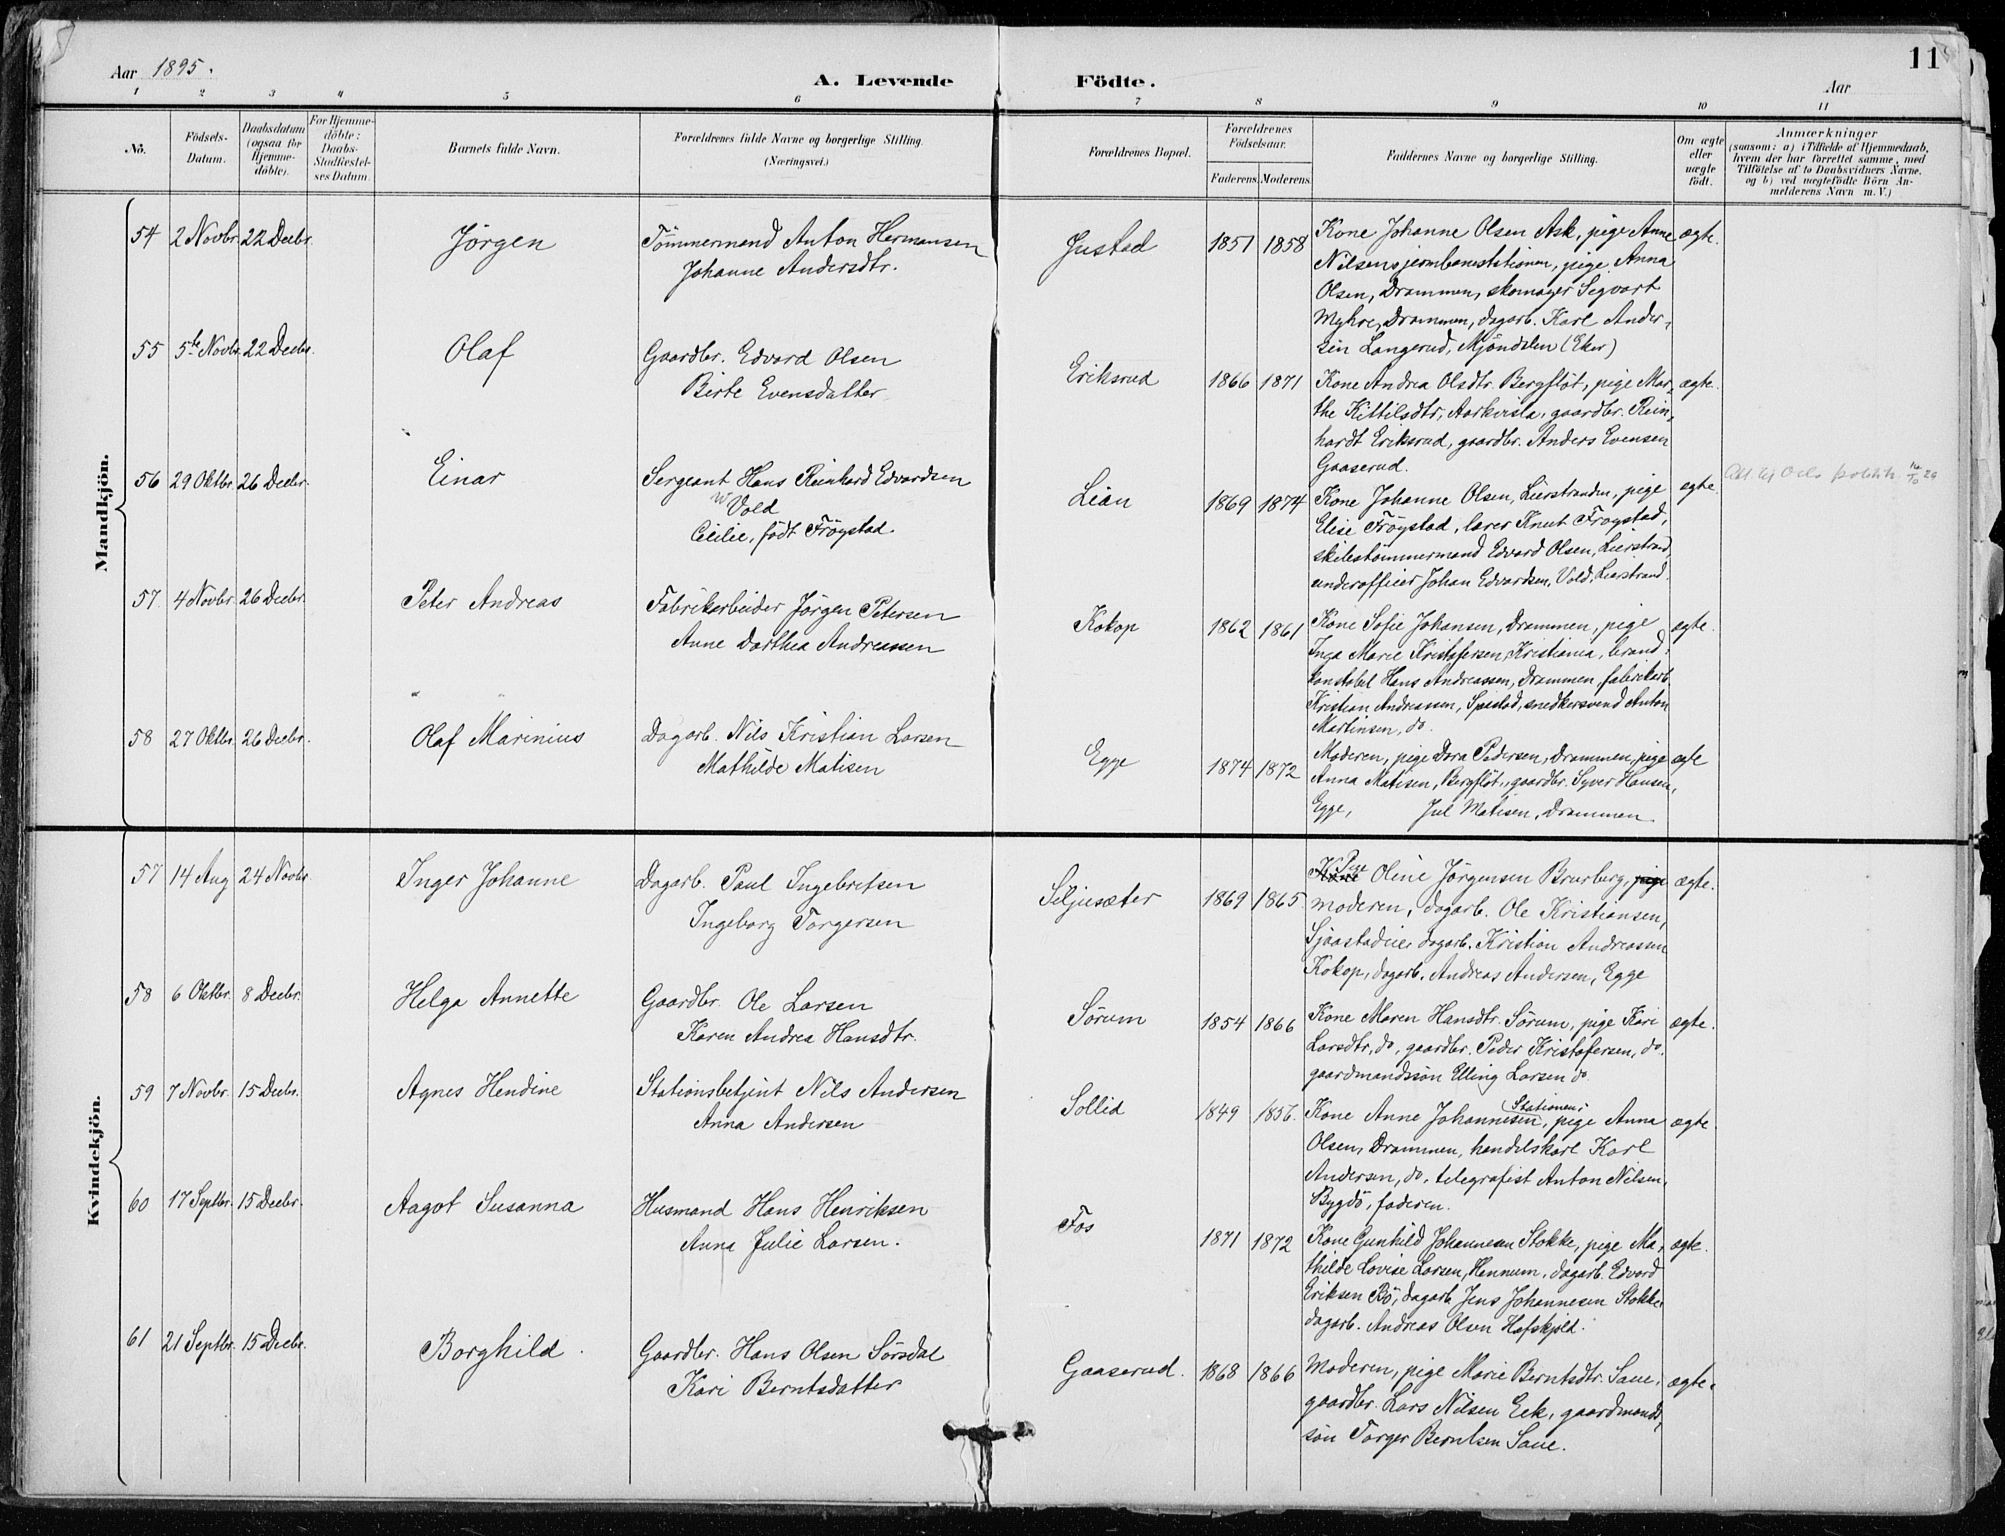 11
Aar 1895.
A. Levende Födte.
Aar
1 2 3 4 5 6 7 8 9 10 11
No.
Födsels-Datum.
Daabsdatum (ogsaa for Hjemmedöbte).
For Hjemmedöbte: Daabs-Stadfæstelses Datum.
Barnets fulde Navn.
Forældrenes fulde Navne og borgerlige Stilling. (Næringsvei.)
Forældrenes Bopæl.
Forældrenes Födselsaar.
Faderens. Moderens.
Faddernes Navne og borgerlige Stilling.
Om ægte eller uægte födt.
Anmærkninger
(saasom: a) i Tilfælde af Hjemmedaab,
hvem der har forrettet samme, med
Tilföielse af to Daabsvidners Navne,
og b) ved uægtefödte Börn An-
melderens Navn m. V.)
Mandkjön.
54 2 Novbr. 22 Decbr. Jørgen
Tömmermand Anton Hermansen
Johanne Andersdtr.
Justad 1851 1858
Kone Johanne Olsen Ask, pige Anne
Nilsen, jernbanestationen, pige Anna
Olsen, Drammen, skomager Segvart
Myhre, Drammen, dagarb. Karl Ander-
sen Langerud, Mjöndalen (Eker)
ægte.
55 5te Novbr. 22 Decbr. Olaf
Gaardbr. Edvard Olsen
Birte Evensdatter
Eriksrud 1866 1871
Kone Andrea Olsdtr. Bergflöt, pige Mar-
the Kittilsdtr, Aarkvisla, gaardbr. Rein-
hardt Eriksrud, gaardbr. Anders Evensen
Gaaserud.
ægte.
56 29 Oktbr. 26 Decbr. Einar
Sergeant Hans Reinhard Edvardsen
Vold
Cecilie, født Frøystad.
Lian 1869 1874
Kone Johanne Olsen, Lierstranden, pige
Elise Frøystad, lærer Knut Frøystad,
skibstömmermand Edvard Olsen, Lierstrand,
underofficer Johan Edvardsen, Vold, Lierstrand.
ægte.
57. 4 Novbr. 26 Decbr. Peter Andreas
Fabrikarbeider Jörgen Petersen
Anne Dorthea Andreassen
Kokop 1862 1861
Kone Sofie Johansen, Drammen, pige
Inga Marie Kristofersen, Kristiania, brand-
konstabel Hans Andreassen, Drammen, fabrikarb.
Kristian Andreassen, snedkersvend Anton
Martinsen, do.
ægte.
58 27 Oktbr. 26 Decbr. Olaf Marinius
Dagarb. Nils Kristian Larsen
Mathilde Matisen
Egge 1874 1872
Moderen, pige Dora Pedersen, Drammen, pige
Anna Matisen, Bergflöt, gaardbr. Syver Hansen,
Egge, Jul Matisen, Drammen.
ægte
Kvindekjön.
57 14 Aug 24 Novbr. Inger Johanne
Dagarb. Paul Ingebretsen
Ingeborg Torgersen
Siljusæter 1869 1865
Pige Oline Jörgensen Brurberg, pige
moderen, dagarb. Ole Kristiansen,
Sjaastadeie, dagarb. Kristian Andreassen
Kokop, dagarb. Andreas Andersen, Egge
ægte.
58 6 Oktbr. 8 Decbr. Helga Annette
Gaardbr. Ole Larsen
Karen Andrea Hansdtr.
Sørum 1854 1866
Kone Maren Hansdtr. Sørum, pige Kari
Larsdtr, do, gaardbr. Peder Kristofersen, do.
gaardmandssön Elling Larsen do.
ægte.
59 7 Novbr. 15 Decbr. Agnes Hendine
Stationsbetjent Nils Andersen
Anna Andersen
Sollid 1849 1856.
Kone Anne Johannesen, Stationen, pige Anna
Olsen, Drammen, handelskarl Karl
Andersen, do, telegrafist Anton Nilsen,
Bygdö, faderen.
ægte.
60 17 Septbr. 15 Decbr. Aagot Susanna
Husmand Hans Henriksen
Anna Julie Larsen.
Fos 1871 1872
Kone Gunhild Johannesen Stokke, pige Ma-
thilde Lovise Larsen, Hennum, dagarb. Edvard
Eriksen Bö, dagarb. Jens Johannesen Stokke
dagarb. Andreas Olsen Hafskjold.
ægte.
61 21 Septbr. 15 Decbr. Borghild.
Gaardbr. Hans Olsen Sørsdal
Kari Berntsdatter
Gaaserud. 1868 1866
Moderen, pige Marie Berntsdtr. Saue,
gaardbr. Lars Nilsen Eek, gaardmands-
sön Torger Berntsen Saue.
ægte.